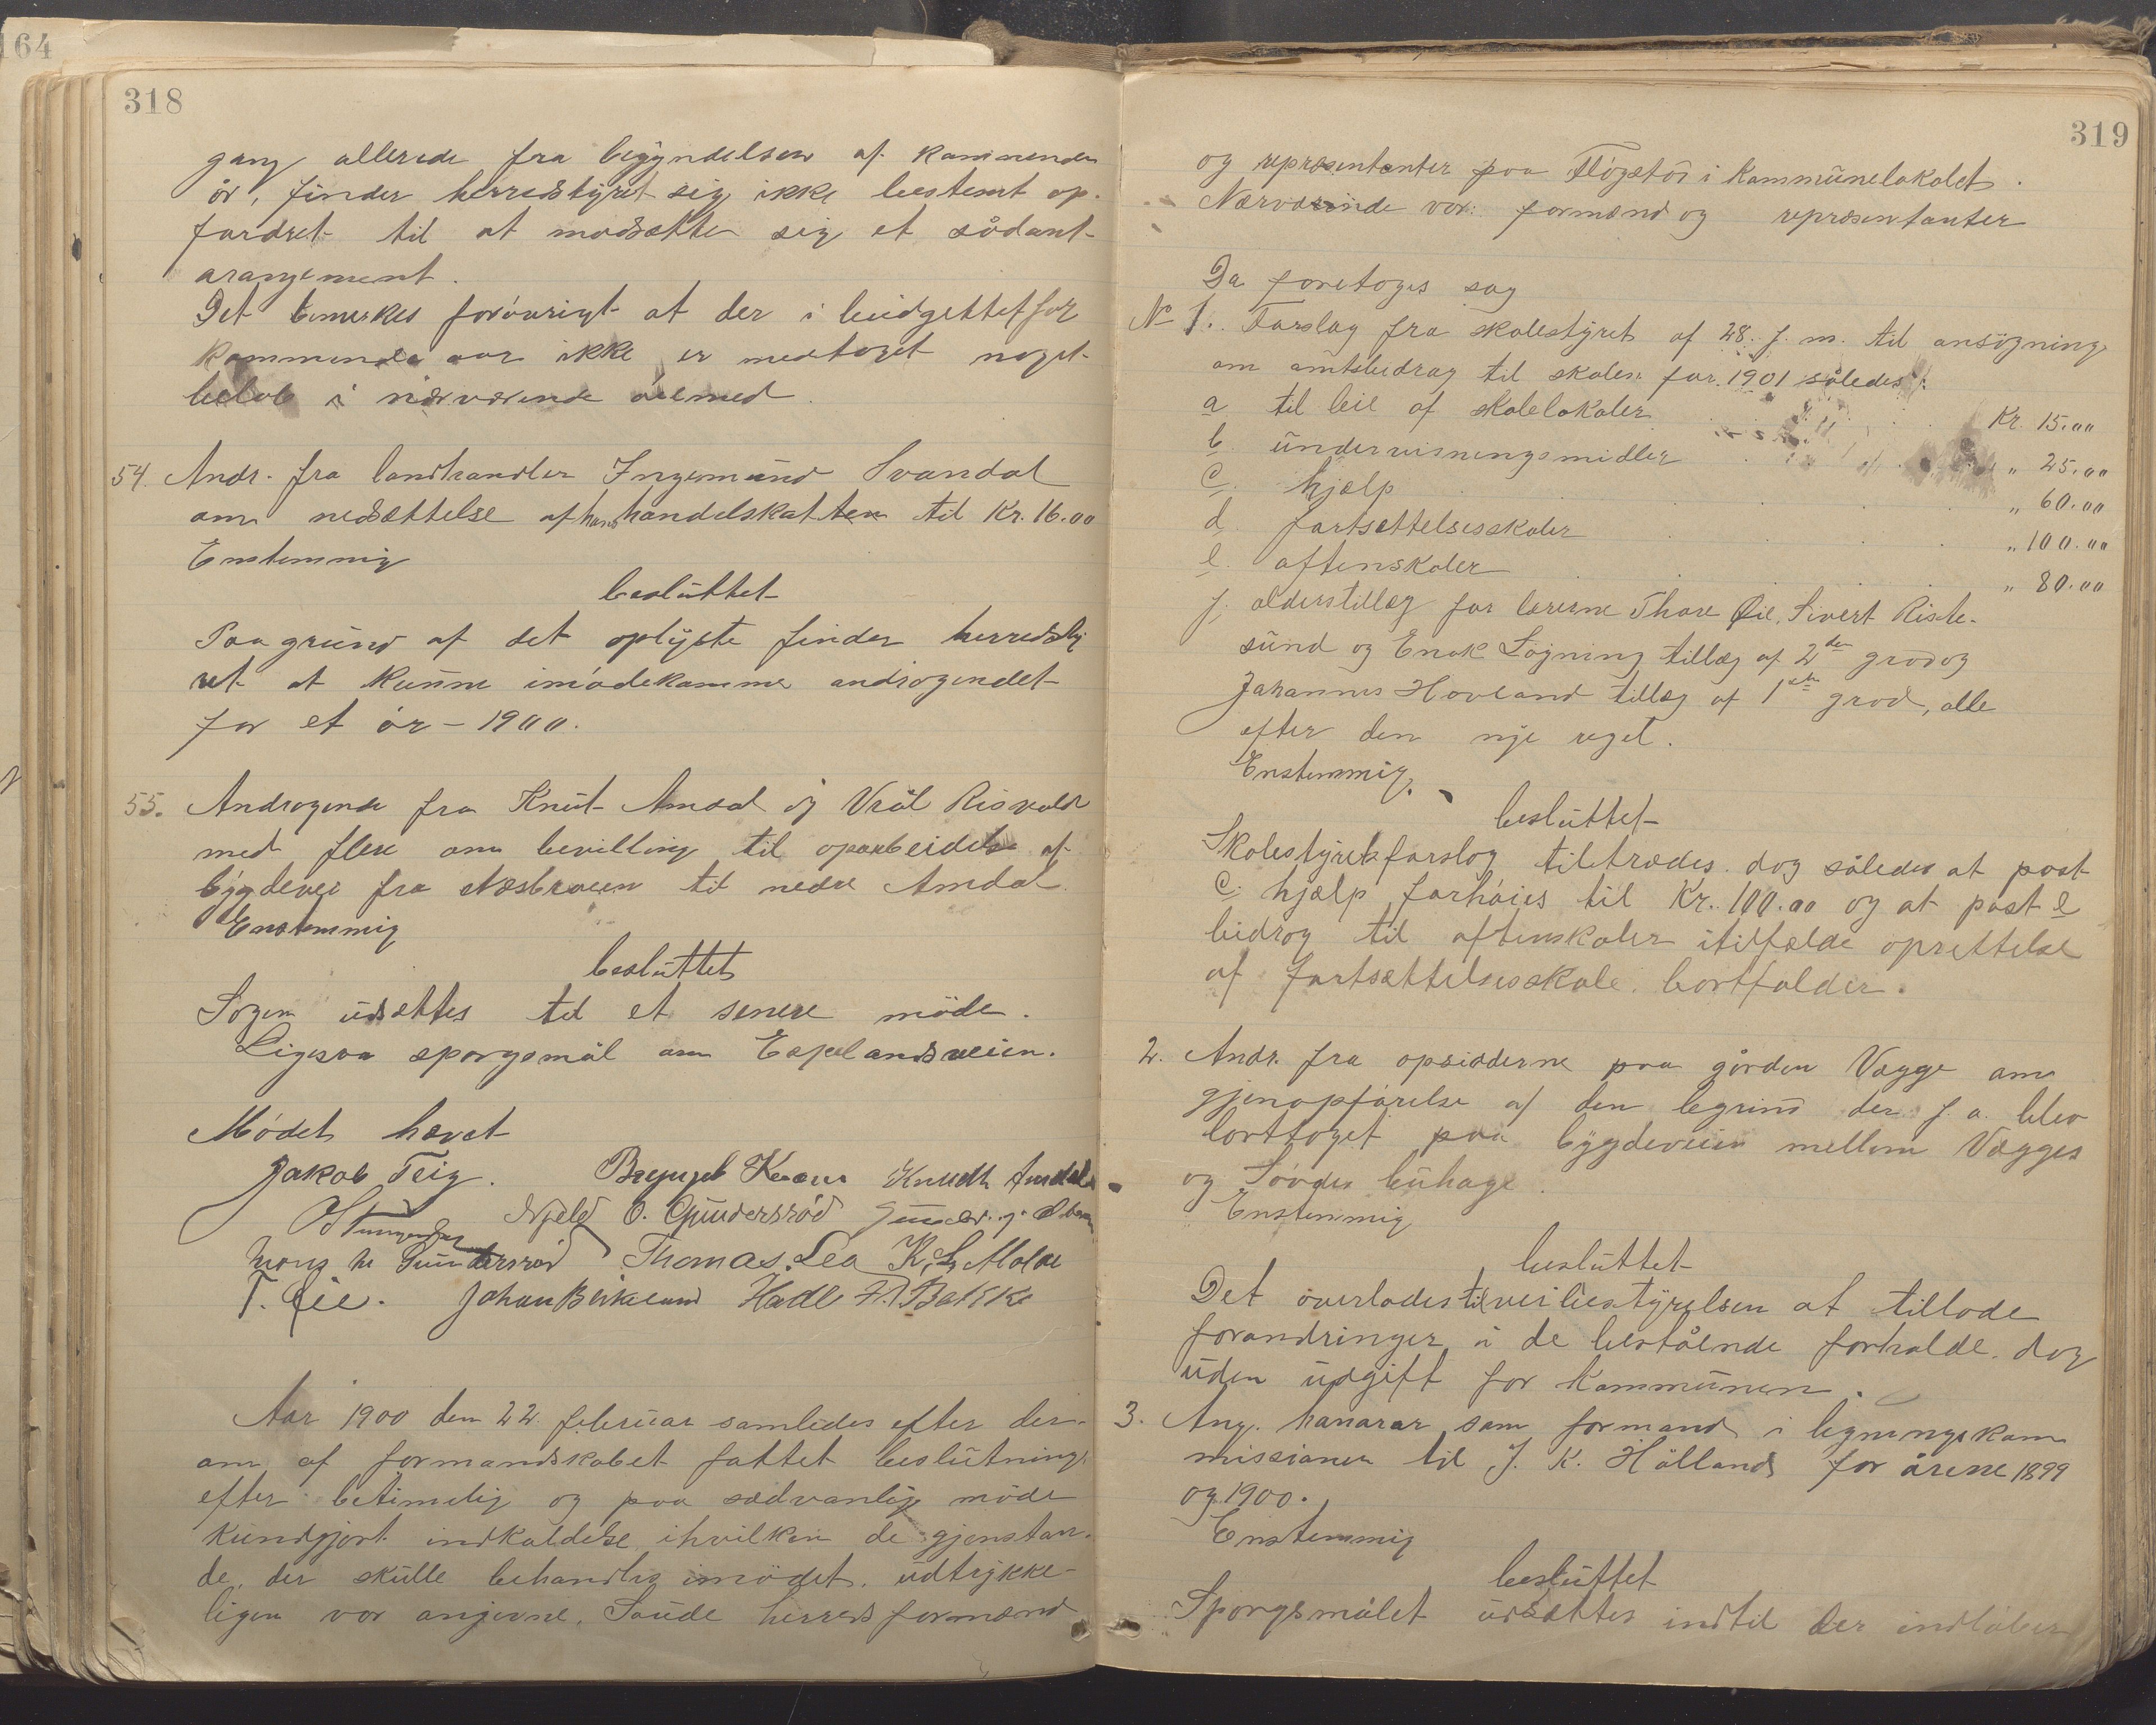 64
318
gang allerede fra begyndelsen af kommende
år, finder herredstyret sig ikke bestemt op-
fordret til at modsætte sig et sådant
arangement.
Det bemerkes forövrigt at der i budgettet for
kommende aar ikke er medtaget noget
beløb i nærværende öiemed.
54. Andr. fra landhandler Ingemund Svandal
om nedsættelse af hans handelskatten til Kr. 16.00
Enstemmig
besluttet
Paa grund af det oplyste finder herredsty
ret at kunne imödekomme androgendet
for et år - 1900.
55. Androgende fra Knut Amdal og Vrål Risvold
med flere om bevilling til oparbeidelse af
bygdevei fra Næsbroen til nedre Amdal.
Enstemmig
besluttet
Sagen udsættes til et senere möde.
Ligesaa spørgsmål om Espelandsveien.
Mödet hævet
Jakob Teig. Bryngel Knudh Amdal
Njeld O. Gundersröd
Mons M Gundersröd Thomas. Lea K. L. Molde
T. Øie. Johan Birkeland Hadle H. Bakke
Aar 1900 den 22. februar samledes efter der-
om af formandskabet fattet beslutning,
efter betimelig og paa sædvanlig måde
kundgjort indkaldelse, ihvilken de gjenstan-
de, der skulle behandles imödet, udtrykke-
ligen var angivne, Saude herreds formænd
319
og repræsentanter paa Fløgstöi i kommunelokalet.
Nærværende var: formænd og repræsentanter
Da foretoges sag
No 1. Forslag fra skolestyret af 28. f. m. til ansögning
om amtsbidrag til skolen for 1901 således:
a til leie af skolelokaler Kr. 15.00
b. undervisningsmidler " 25.00
c. hjælp " 60.00
d fortsettelsesskoler " 100.00
e. aftenskoler " 80.00
f. alderstillæg for lærerne Thore Øie, Sivert Riste-
sund og Enok Løgning tillæg af 2den grad og
Johannes Hovland tillæg af 1ste grad, alle
efter den nye regel.
Enstemmig.
besluttet
Skolestyrets forslag tiltrædes dog således at post
c. hjælp forhöies til Kr. 100.00 og at post e
bidrag til aftenskoler itilfælde oprettelse
af fortsættelsesskole bortfalder.
2. Andr. fra opsidderne paa gården Vægge om
gjenopførelse af den legrind der f. a. blev
borttaget paa bygdeveien mellem Vægges
og Søvdes buhage.
Enstemmig
besluttet
Det overlades til veibestyrelsen at tillade
forandringer i de bestående forholde, dog
uden udgift for kommunen.
3. Ang. honorar som formand i ligningskom
missionen til J. K. Hålland for årene 1899
og 1900.
Enstemmig
besluttet
Spørgsmålet udsættes indtil der indløber